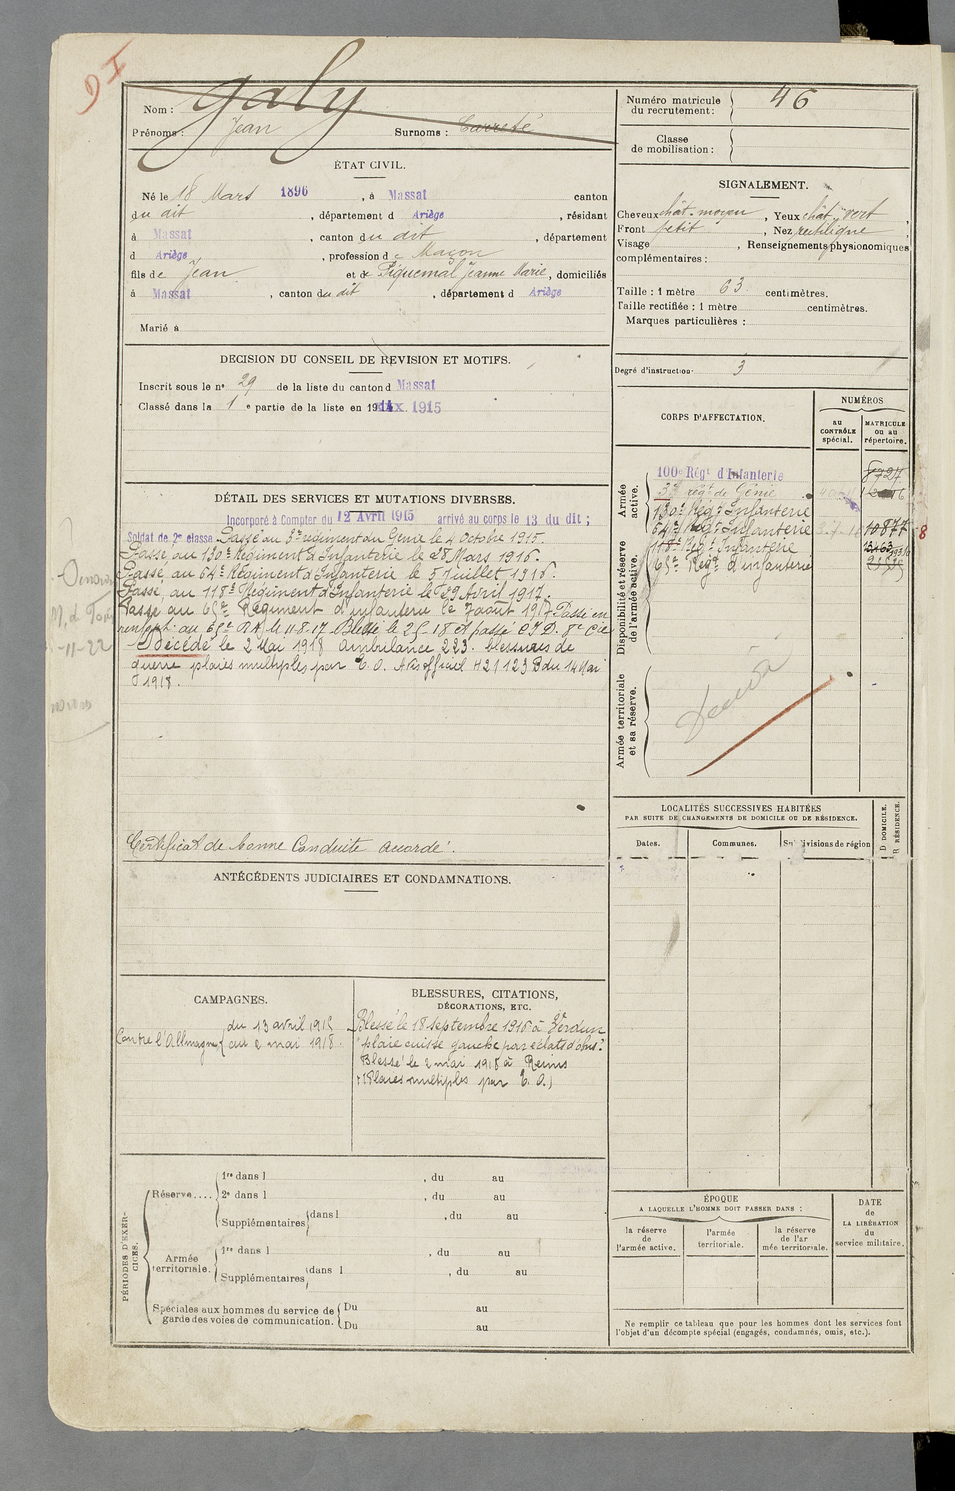 9 I
Nom : Galy
Prénoms : Jean Surnoms : Carreté
ÉTAT CIVIL.
Né le 18 Mars 1896, à Massat canton
du dit, département d Ariège, résidant
à Massat, canton du dit, département
d Ariège, profession de Maçon
fils de Jean et de Piquemal Jeanne Marie, domiciliés
à Massat, canton du dit, département d Ariège
Marié à
DECISION DU CONSEIL DE REVISION ET MOTIFS.
Inscrit sous le nº 29 de la liste du canton d Massat
Classé dans la 1 e partie de la liste en 1915
DÉTAIL DES SERVICES ET MUTATIONS DIVERSES.
Incorporé à Compter du 12 Avril 1915 arrivé au corps le 13 du dit ;
Soldat de 2e classe. Passé au 3e régiment du Génie le 4 Octobre 1915.
Passé au 130e Régiment d'Infanterie le 28 Mars 1916.
Passé au 64e Régiment d'Infanterie le 5 Juillet 1916.
Passé au 118e Régiment d'Infanterie le 29 Avril 1917.
Passé au 65e Régiment d'infanterie le 7 août 1917 Passé en
renfort au 65e RI le 11-8-17 Blessé le 2-5-18 et passé C.I.D. 8e Cie
Décédé le 2 Mai 1918 ambulance 223. blessures de
guerre plaies multiples par E. O. Avis officiel H 21123 B du 14 Mai
1918.
-11-22
Certificat de bonne Conduite accordé.
ANTÉCÉDENTS JUDICIAIRES ET CONDAMNATIONS.
CAMPAGNES.
Contre l'Allemagne du 13 avril 1915
au 2 mai 1918.
BLESSURES, CITATIONS,
DÉCORATIONS, ETC.
Blessé le 18 septembre 1916 à Verdun
"plaie cuisse gauche par éclats d'obus"
Blessé le 2 mai 1918 à Reims
(Plaies multiples par E. O.)
PÉRIODES D'EXERCICES.
Réserve.... 1re dans l , du au
2e dans l , du au
Supplémentaires dans l , du au
Armée territoriale. 1re dans l , du au
Supplémentaires dans l , du au
Spéciales aux hommes du service de Du au
garde des voies de communication. Du au
Numéro matricule
du recrutement : 46
Classe
de mobilisation :
SIGNALEMENT.
Cheveux chât. moyen, Yeux chât. vert,
Front petit, Nez rectiligne,
Visage , Renseignements physionomiques
complémentaires :
Taille : 1 mètre 63 centimètres.
Taille rectifiée : 1 mètre centimètres.
Marques particulières :
Degré d'instruction 3
CORPS D'AFFECTATION.
NUMÉROS
au CONTRÔLE spécial.
MATRICULE ou au répertoire.
Armée active.
100e Régt d'Infanterie 8727
3e régt de Génie
Disponibilité et réserve de l'armée active.
130e Régt Infanterie
64e Régt Infanterie 10877
118e Régt Infanterie
65e Régt d'infanterie
8
Armée territoriale et sa réserve.
Décédé
LOCALITÉS SUCCESSIVES HABITÉES
PAR SUITE DE CHANGEMENTS DE DOMICILE OU DE RÉSIDENCE.
Dates. Communes. Subdivisions de région
D. DOMICILE.
R. RÉSIDENCE.
ÉPOQUE
A LAQUELLE L'HOMME DOIT PASSER DANS :
la réserve de l'armée active.
l'armée territoriale.
la réserve de l'armée territoriale.
DATE
de
LA LIBÉRATION
du
service militaire.
Ne remplir ce tableau que pour les hommes dont les services font
l'objet d'un décompte spécial (engagés, condamnés, omis, etc.).